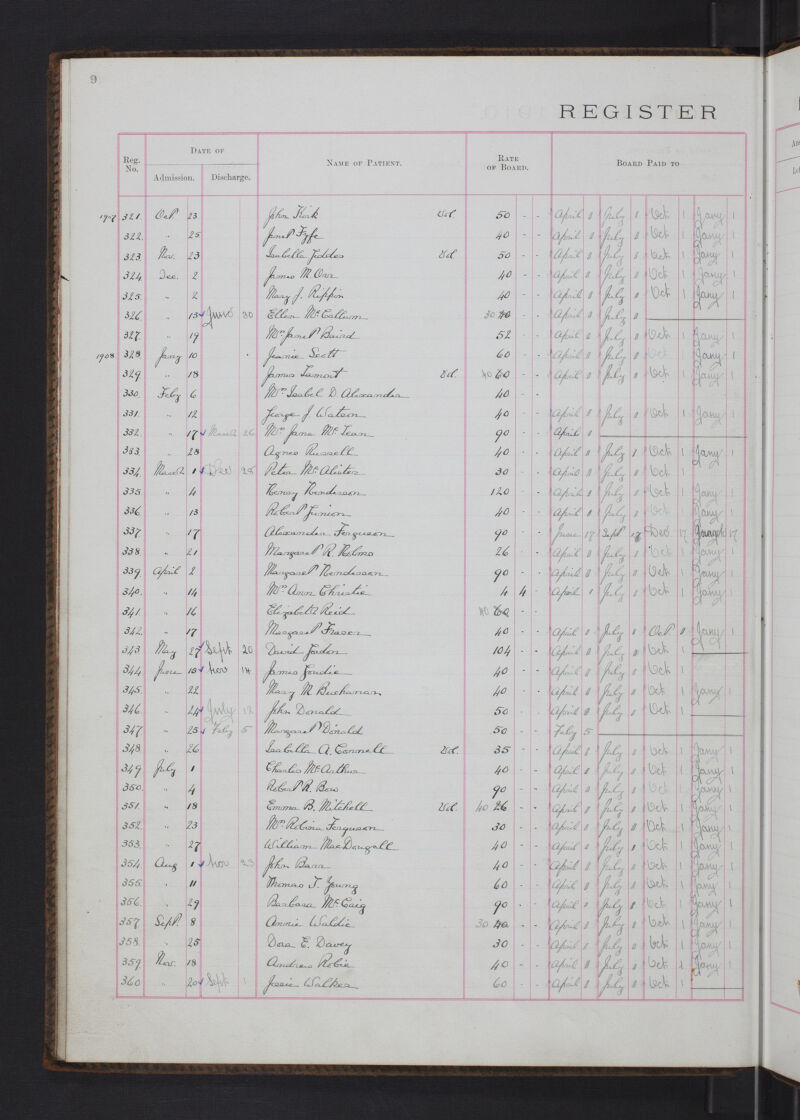 9
REGISTER
Reg. No. DATE OF NAME OF PATIENT. RATE OF BOARD. BOARD PAID TO
Admission. Discharge.
1907 321. Oct 23 John Kirk Vol 50 - - April 1 July 1 Oct 1 Jany 1
322. " 25 Janet Fyfe 40 - - April 1 July 1 Oct 1 Jany 1
323 Nov. 23 Isabella Geddes Vol 50 - - April 1 July 1 Oct 1 Jany 1
324 Dec. 2 James M. Orr 40 - - April 1 July 1 Oct 1 Jany 1
325. " 2 Mary J. Rippin 40 - - April 1 July 1 Oct 1 Jany 1
326 " 13 June 30 Ellen McCallum 30 40 - - April 1 July 1
327 " 19 Mrs Janet Baird 52 - - April 1 July 1 Oct 1 Jany 1
1908 328 Jany 10 Jeanie Scott 60 - - April 1 July 1 Oct 1 Jany 1
329 " 18 James Lamont Vol 40 60 - - April 1 July 1 Oct 1 Jany 1
330. Feby 6 Mrs Isabel D. Alexander 40 - -
331. " 12 George J Watson 40 - - April 1 July 1 Oct 1 Jany 1
332. " 17 March 26 Mrs Jane McLean 90 - - April 1
333 " 28 Agnes Russell 40 - - April 1 July 1 Oct 1 Jany 1
334. March 1 Dec 28 Peter McAlister 30 - - April 1 July 1 Oct 1
335 " 4 Henry Henderson 120 - - April 1 July 1 Oct 1 Jany 1
336 " 13 Robert Junion 40 - - April 1 July 1 Oct 1 Jany 1
337 " 17 Alexander Ferguson 90 - - June 17 Sept 17 Dec 17 17
338 " 21 Margaret R. Helms 26 - - April 1 July 1 Oct 1 Jany 1
339 April 2 Margaret Henderson 90 - - April 1 July 1 Oct 1 Jany 1
340. " 14 Mrs Ann Christie 4 4 - April 1 July 1 Oct 1 Jany 1
341. " 16 Elizabeth Reid 40 60 - -
342. " 17 Margaret Fraser 40 - - April 1 July 1 Oct 1 Jany 1
343 May 27 Sept 20 David Jardon 104 - - April 1 July 1 Oct 1
344 June 13 Nov 14 James Goudie 40 - - April 1 July 1 Oct 1
345. " 22 Mary M Buchanan 40 - - April 1 July 1 Oct 1 Jany 1
346 " 24 July 12 John Donald 50 - - April 1 July 1 Oct 1
347 " 25 Feby 5 Margaret Donald 50 - - Feby 5
348 " 26 Isabella A. Connell Vol 35 - - April 1 July 1 Oct 1 Jany 1
349 July 1 Charles McArthur 40 - - April 1 July 1 Oct 1 Jany 1
350. " 4 Robert R. Bow 90 - - April 1 July 1 Oct 1 Jany 1
351 " 18 Emma B. Mitchell Vol 40 26 - - April 1 July 1 Oct 1 Jany 1
352. " 23 Mrs Robina Ferguson 30 - - April 1 July 1 Oct 1 Jany 1
353. " 27 William MacDougall 40 - - April 1 July 1 Oct 1 Jany 1
354 Aug 1 Nov 23 John Barr 40 - - April 1 July 1 Oct 1 Jany 1
355. " 11 Thomas T. Young 60 - - April 1 July 1 Oct 1 Jany 1
356. " 29 Barbara McCaig 90 - - April 1 July 1 Oct 1 Jany 1
357 Sept. 8 Annie Waldie 30 40 - - April 1 July 1 Oct 1 Jany 1
358. " 25 Dora E. Davey 30 - - April 1 July 1 Oct 1 Jany 1
359 Nov. 18 Andrew Robie 40 - - April 1 July 1 Oct 1 Jany 1
360 " 20 Sept 1 Jessie Walker 60 - - April 1 July 1 Oct 1